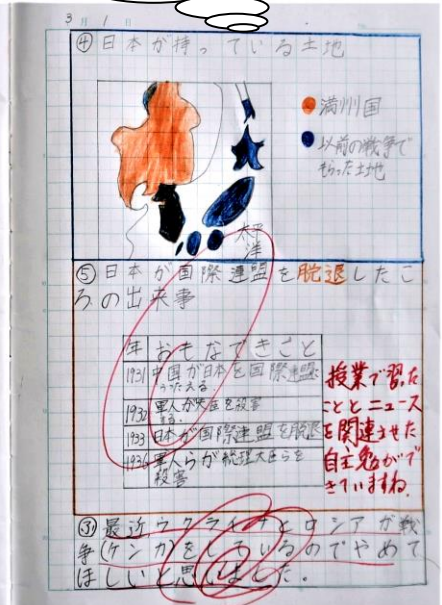 3 1
④日本が持っている土地
満州国
以前の戦争で
もらった土地
太平
洋
⑤日本が国際連盟を脱退したこ
ろの出来事
年 おもなできごと
1931 中国が日本を国際連盟に
うったえる。
1932 軍人が大臣を殺害
する。
1933 日本が国際連盟を脱退
1936 軍人らが総理大臣らを
殺害
授業で習った
こととニュース
を関連させた
自主勉がで
きていますね。
③最近ウクライナとロシアが戦
争(ケンカ)をしているのでやめて
ほしいと思いました。